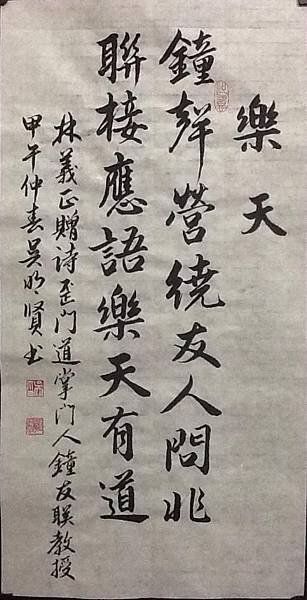 樂天
鐘聲營繞友人問非
聯接應語樂天有道
林義正贈诗歪门道掌门人鐘友联教授
甲午仲春吴明賢书